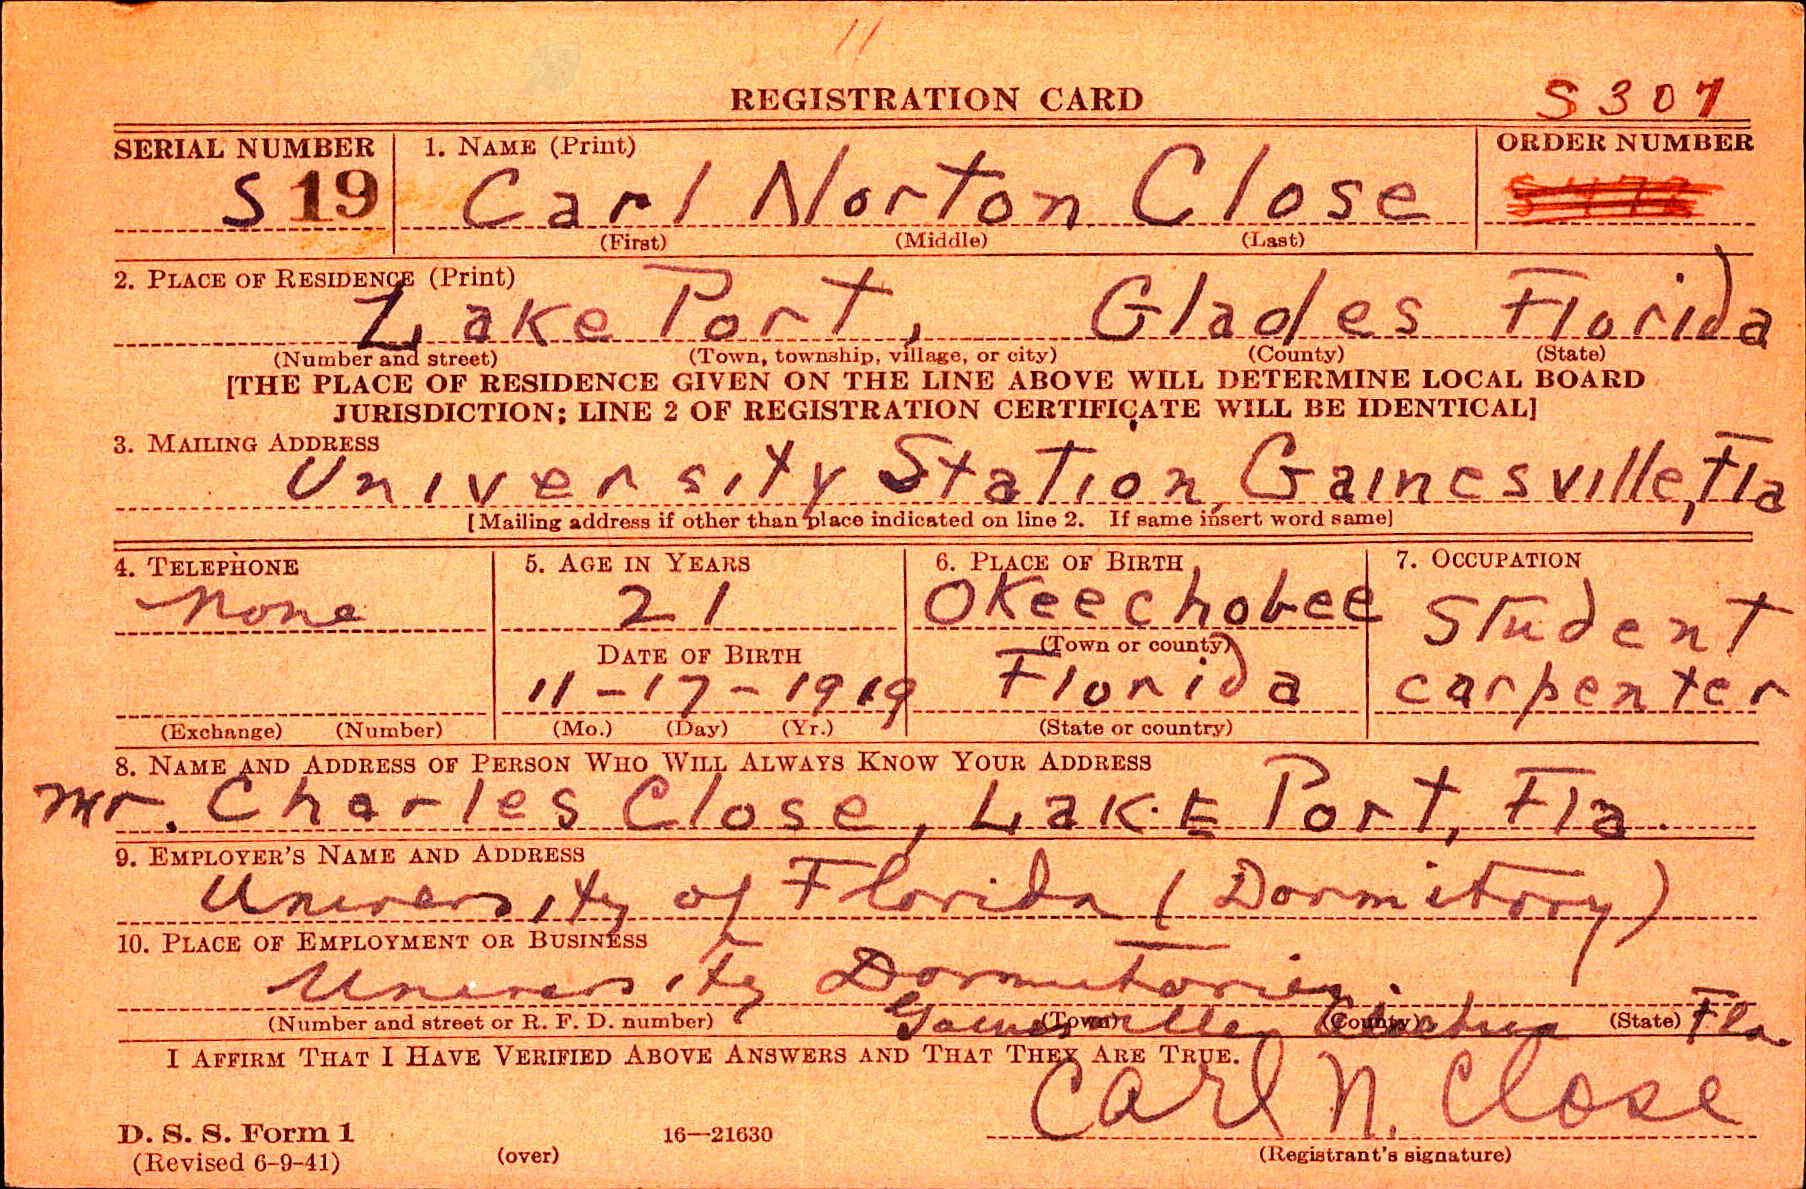 11
REGISTRATION CARD
S 307
SERIAL NUMBER 1. NAME (Print) ORDER NUMBER
S 19 Carl Norton Close
(First) (Middle) (Last)
2. PLACE OF RESIDENCE (Print)
Lake Port, Glades Florida
(Number and street) (Town, township, village, or city) (County) (State)
[THE PLACE OF RESIDENCE GIVEN ON THE LINE ABOVE WILL DETERMINE LOCAL BOARD
JURISDICTION; LINE 2 OF REGISTRATION CERTIFICATE WILL BE IDENTICAL]
3. MAILING ADDRESS
University Station, Gainesville, Fla
[Mailing address if other than place indicated on line 2. If same insert word same]
4. TELEPHONE 5. AGE IN YEARS 6. PLACE OF BIRTH 7. OCCUPATION
None 21 Okeechobee Student
(Town or county)
DATE OF BIRTH
11-17-1919 Florida carpenter
(Exchange) (Number) (Mo.) (Day) (Yr.) (State or country)
8. NAME AND ADDRESS OF PERSON WHO WILL ALWAYS KNOW YOUR ADDRESS
Mr. Charles Close, Lake Port, Fla.
9. EMPLOYER'S NAME AND ADDRESS
University of Florida (Dormitory)
10. PLACE OF EMPLOYMENT OR BUSINESS
University Dormitories.
Gainesville, Alachua Fla.
(Number and street or R. F. D. number) (Town) (County) (State)
I AFFIRM THAT I HAVE VERIFIED ABOVE ANSWERS AND THAT THEY ARE TRUE.
Carl N. Close
D. S. S. Form 1 16—21630
(Revised 6-9-41) (over) (Registrant's signature)